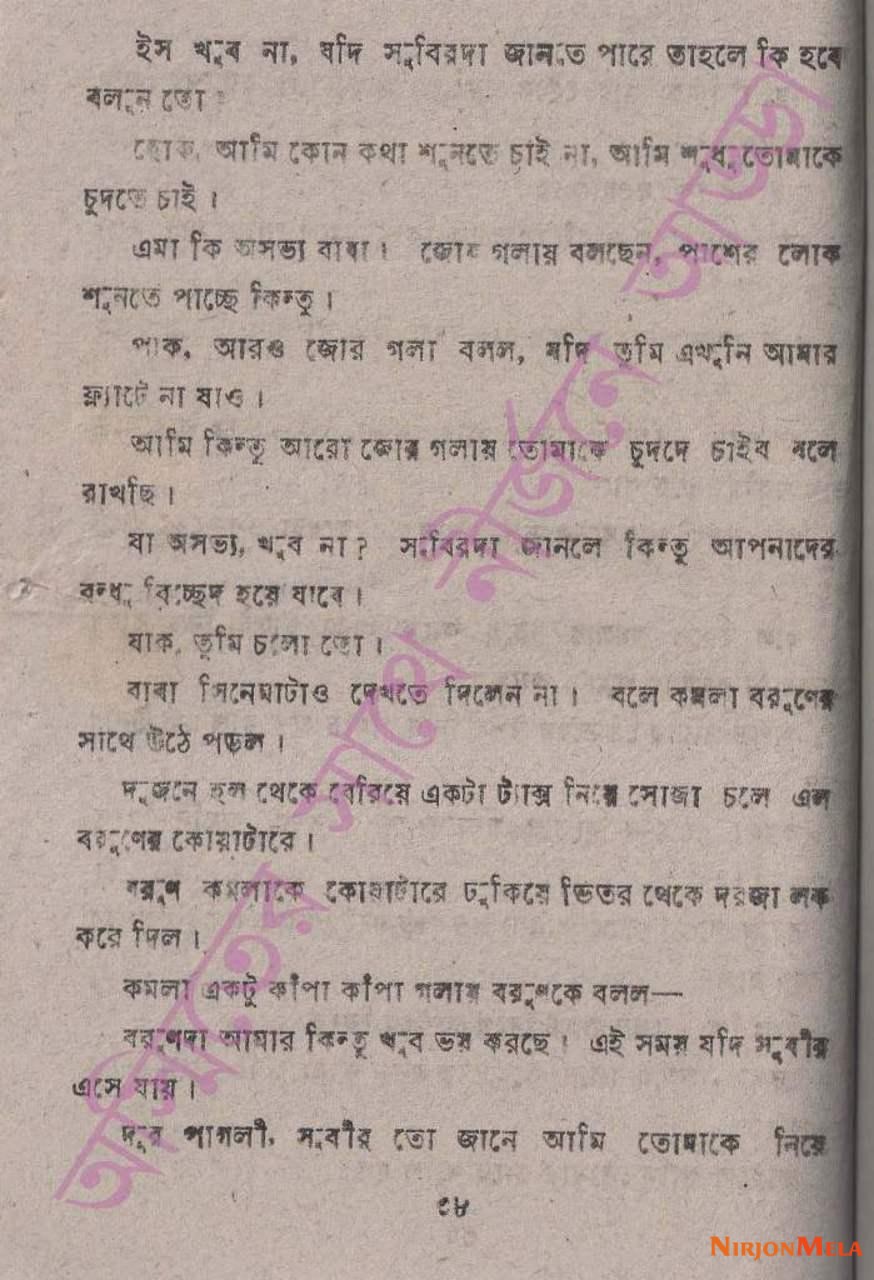 ইস খুব না, যদি সুবিরদা জানতে পারে তাহলে কি হবে
বলুন তো
হোক, আমি কোন কথা শুনতে চাই না, আমি শুধু তোমাকে
চুদতে চাই ।
এমা কি অসভ্য বাবা । জোর গলায় বলছেন, পাশের লোক
শুনতে পাচ্ছে কিন্তু ।
পাক, আরও জোর গলা বলল, যদি তুমি এখুনি আমার
ফ্ল্যাটে না যাও ।
আমি কিন্তু আরো জোর গলায় তোমাকে চুদদে চাইব বলে
রাখছি ।
যা অসভ্য, খুব না ? সুবিরদা জানলে কিন্তু আপনাদের
বন্ধু বিচ্ছেদ হয়ে যাবে ।
যাক, তুমি চলো তো ।
বাবা সিনেমাটাও দেখতে দিলেন না । বলে কমলা বরুণের
সাথে উঠে পড়ল ।
দুজনে হল থেকে বেরিয়ে একটা ট্যাক্স নিয়ে সোজা চলে এল
বরুণের কোয়াটারে ।
বরুণ কমলাকে কোয়াটারে ঢুকিয়ে ভিতর থেকে দরজা লক
করে দিল ।
কমলা একটু কাঁপা কাঁপা গলায় বরুণকে বলল—
বরুণদা আমার কিন্তু খুব ভয় করছে । এই সময় যদি সুবীর
এসে যায় ।
দূর পাগলী, সুবীর তো জানে আমি তোমাকে নিয়ে
৫৮
অস্মিতের সাথে নীর্জনে আড্ডা
NIRJONMELA